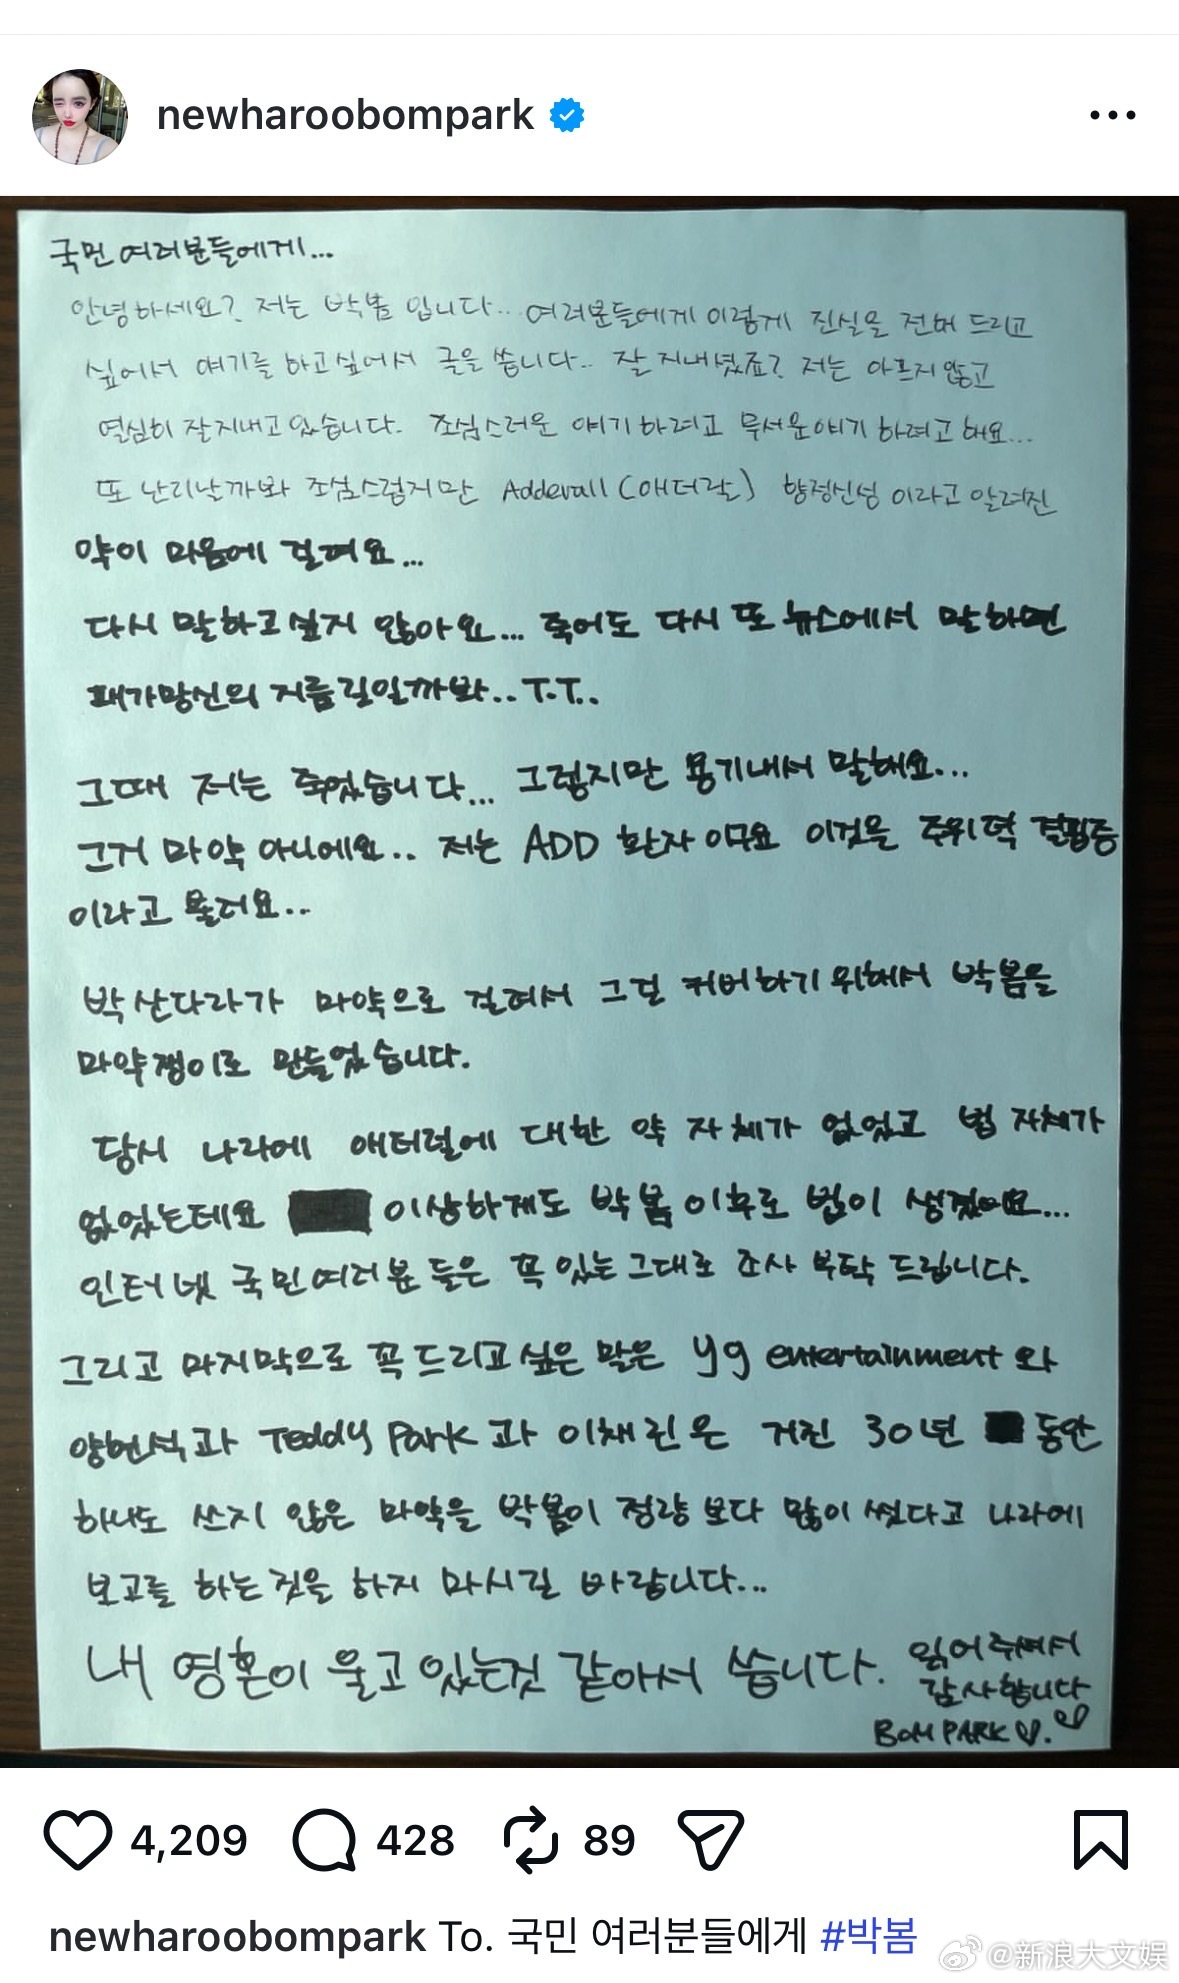 newharoobompark
국민 여러분들에게...
안녕하세요? 저는 박봄 입니다... 여러분들에게 이렇게 진실을 전해 드리고
싶어서 얘기를 하고싶어서 글을 씁니다.. 잘 지내셨죠? 저는 아프지않고
열심히 잘지내고 있습니다. 조심스러운 얘기하려고 무서운얘기 하려고 해요...
또 난리날까봐 조심스럽지만 Adderall (애더랄) 향정신성 이라고 알려진
약이 마음에 걸려요...
다시 말하고싶지 않아요... 죽어도 다시 또 뉴스에서 말하면
패가망신의 지름길일까봐.. T.T..
그때 저는 죽었습니다... 그렇지만 용기내서 말해요...
그거 마약 아니에요.. 저는 ADD 환자 이구요 이것은 주위력 결핍증
이라고 불러요..
박산다라가 마약으로 걸려서 그걸 커버하기 위해서 박봄을
마약쟁이로 만들었습니다.
당시 나라에 애터럴에 대한 약 자체가 없었고 법 자체가
없었는데요 이상하게도 박봄 이후로 법이 생겼어요...
인터넷 국민여러분 들은 꼭 있는그대로 조사 부탁 드립니다.
그리고 마지막으로 꼭 드리고싶은 말은 yg entertainment 와
양현석과 Teddy Park과 이채린은 거진 30년 동안
하나도 쓰지 않은 마약을 박봄이 정량 보다 많이 썼다고 나라에
보고를 하는 것을 하지 마시길 바랍니다...
내 영혼이 울고있는것 같아서 씁니다. 읽어주셔서
감사합니다
BOM PARK♡.
4,209 428 89
newharoobompark To. 국민 여러분들에게 #박봄
@新浪大文娱